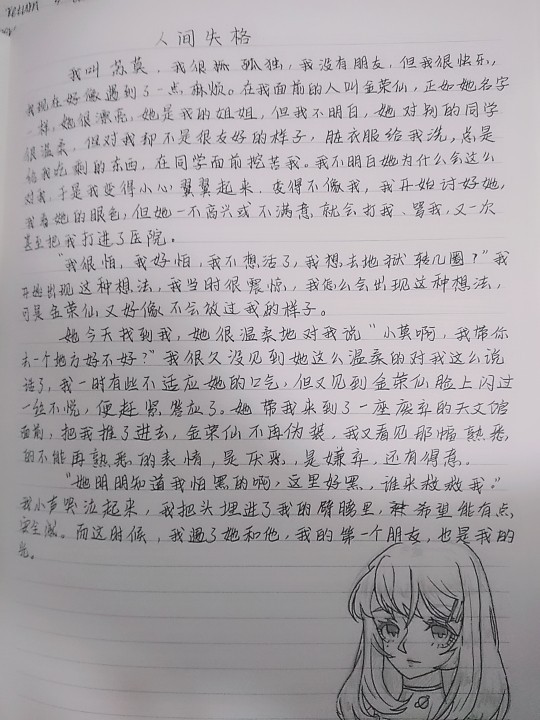 return
人间失格
我叫苏英，我很孤孤独，我没有朋友，但我很快乐，
我现在好像遇到了一点麻烦。在我面前的人叫金荣仙，正如她名字
一样，她很漂亮，她是我的姐姐，但我不明白，她对别的同学
很温柔，但对我却不是很友好的样子，脏衣服给我洗，总是
给我吃剩的东西，在同学面前挖苦我。我不明白她为什么会这么
对我，于是我变得小心翼翼起来，变得不像我，我开始讨好她，
我看她的眼色，但她一不高兴或不满意就会打我、骂我，又一次
甚至把我打进了医院。
“我很怕，我好怕，我不想活了，我想去地狱转几圈？”我
开始出现这种想法，我当时很震惊，我怎么会出现这种想法，
可是金荣仙又好像不会放过我的样子。
她今天找到我，她很温柔地对我说“小英啊，我带你
去一个地方好不好？”我很久没见到她这么温柔的对我这么说
话了，我一时有些不适应她的口气，但又见到金荣仙脸上闪过
一丝不悦，便赶紧答应了。她带我来到了一座废弃的天文馆
面前，把我推了进去，金荣仙不再伪装，我又看见那幅熟悉
的不能再熟悉的表情，是厌恶，是嫌弃，还有得意。
“她明明知道我怕黑的啊，这里好黑，谁来救救我。”
我小声哭泣起来，我把头埋进了我的臂腕里，希望能有点
安全感。而这时候，我遇了她和他，我的第一个朋友，也是我的
光。